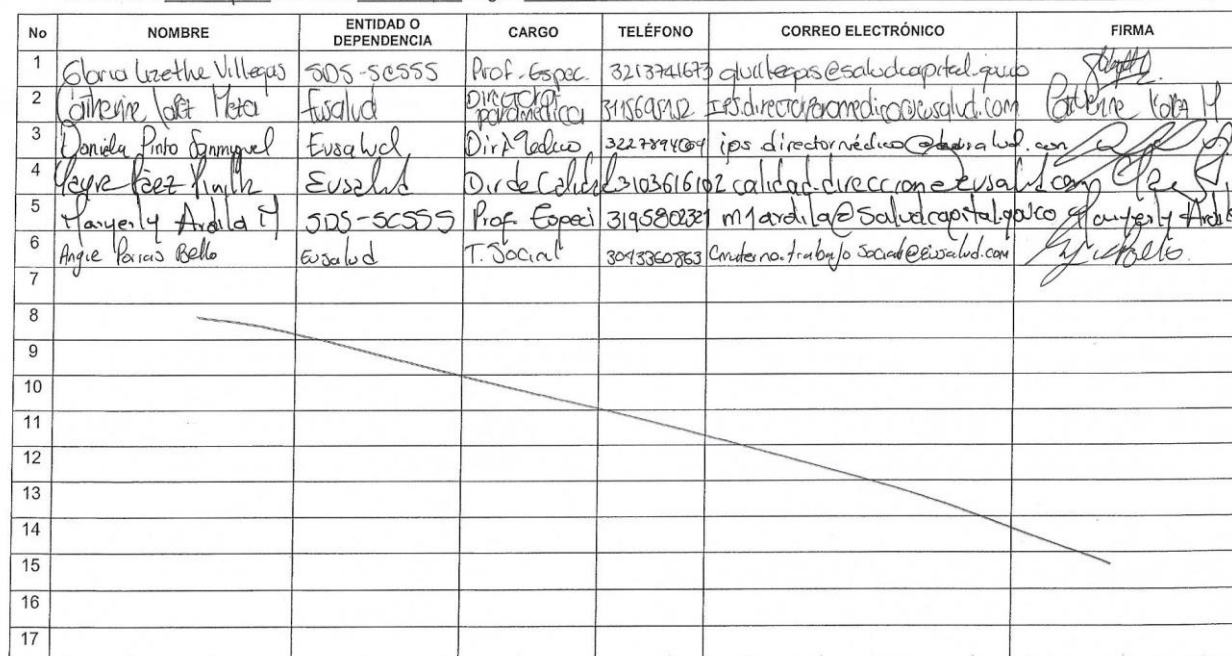 No NOMBRE ENTIDAD O DEPENDENCIA CARGO TELÉFONO CORREO ELECTRÓNICO FIRMA
1 Gloria Lizethe Villegas SDS-SCSSS Prof. Espec. 3213741673 glvillegas@saludcapital.gov.co
2 Catherine López Meta Eusalud Directora paramédica Ips.directorparamedico@eusalud.com Catherine López M
3 Daniela Pinto Sanmiguel Eusalud Dir. Médico 3227894009 ips directormédico@eusalud.com
4 Páez Pinilla Eusalud Dir de Calidad 3103616102 calidad.direccion@eusalud.com
5 Maryerly Ardila M SDS-SCSSS Prof. Especi 3195802321 m1ardila@saludcapital.gov.co Maryerly Ardila
6 Angie Porras Bello Eusalud T. Social 3043360863 trabajo social@eusalud.com
7
8
9
10
11
12
13
14
15
16
17